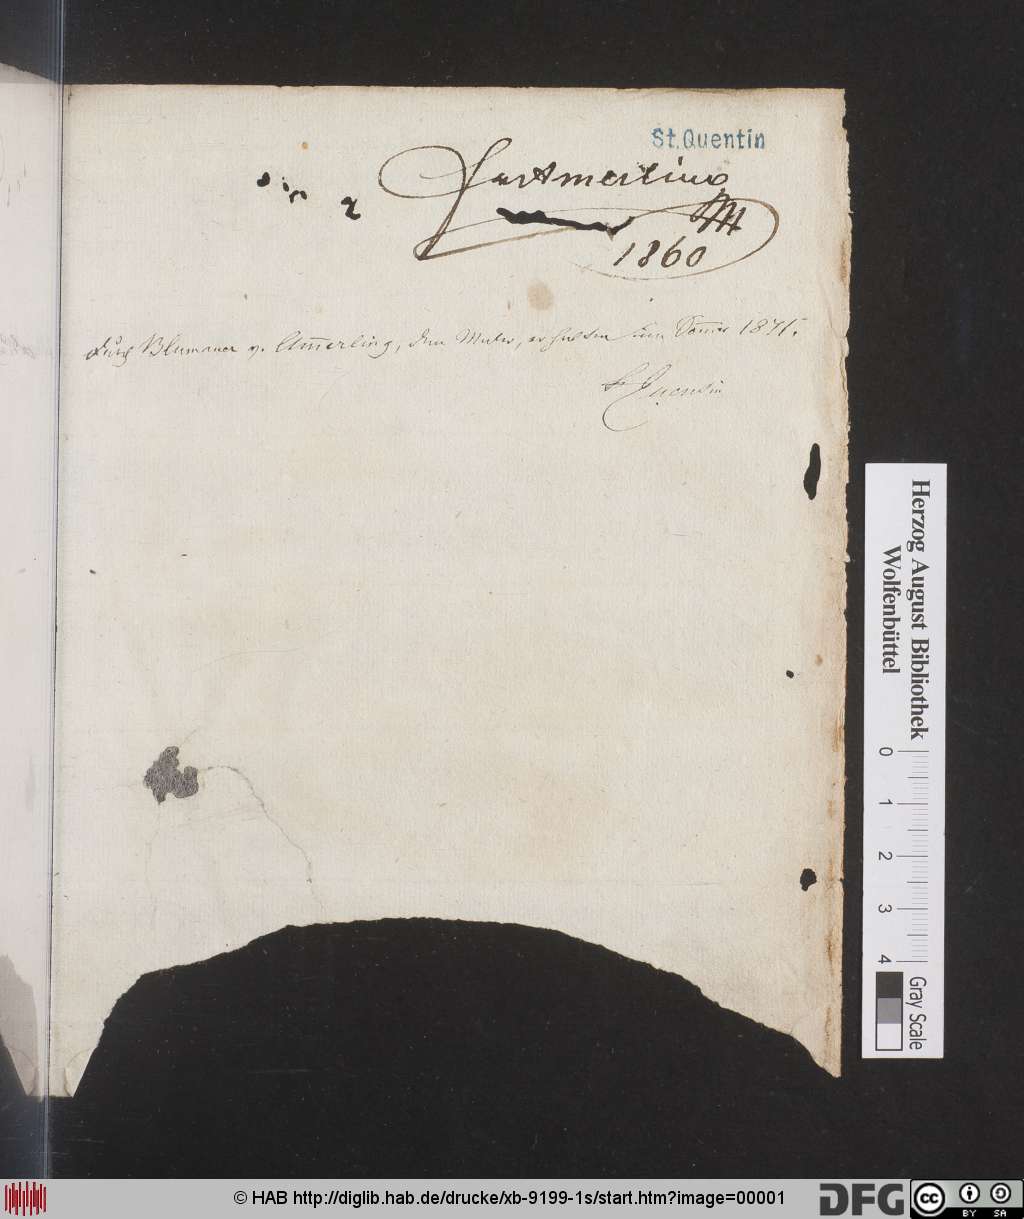 St. Quentin
1860
Durch Blumauer v. Am̅erling, dem Maler, erhalten im Som̅er 1871.
St Quentin
Herzog August Bibliothek
Wolfenbüttel
0 1 2 3 4
Gray Scale
© HAB http://diglib.hab.de/drucke/xb-9199-1s/start.htm?image=00001
DFG
cc BY SA